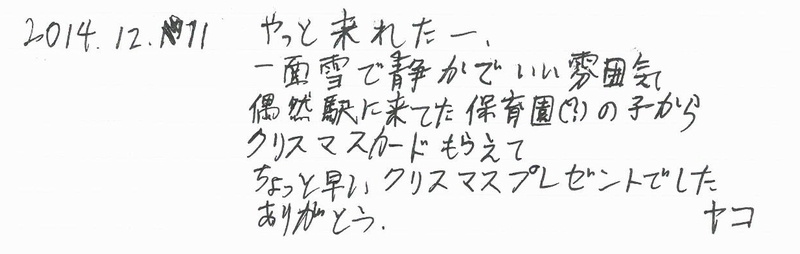 2014.12.11 やっと来れたー、
一面雪で静かでいい雰囲気
偶然駅に来てた保育園(?)の子から
クリスマスカードもらえて
ちょっと早いクリスマスプレゼントでした
ありがとう. ヤコ